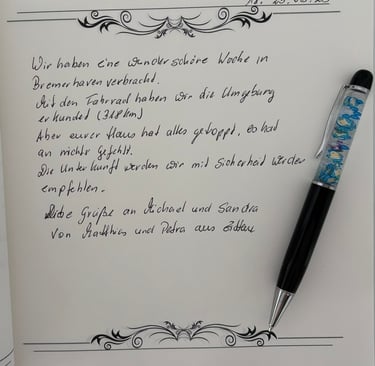 Wir haben eine wunderschöne Woche in
Bremerhaven verbracht.
Mit den Fahrrad haben wir die Umgebung
erkundet (318km)
Aber eurer Haus hat alles getoppt, es hat
an nichts gefehlt.
Die Unterkunft werden wir mit Sicherheit weiter
empfehlen.
Liebe Grüße an Michael und Sandra
von Matthias und Petra aus Zittau